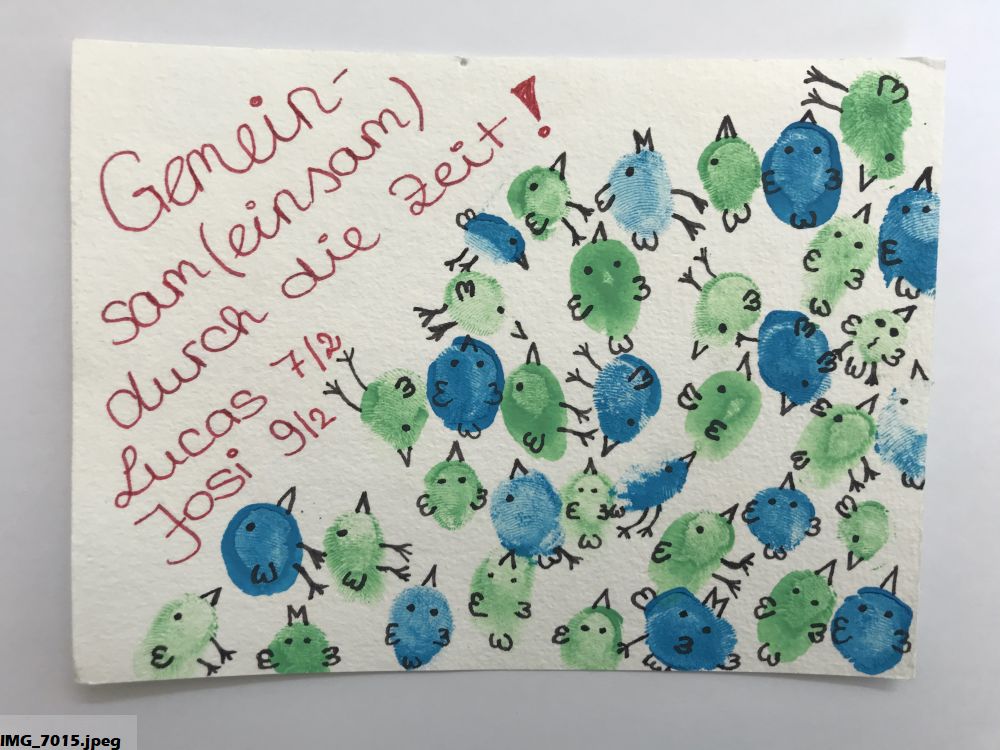 Gemein-
sam (einsam)
durch die Zeit!
Lucas 7/2
Josi 9/2
IMG_7015.jpeg